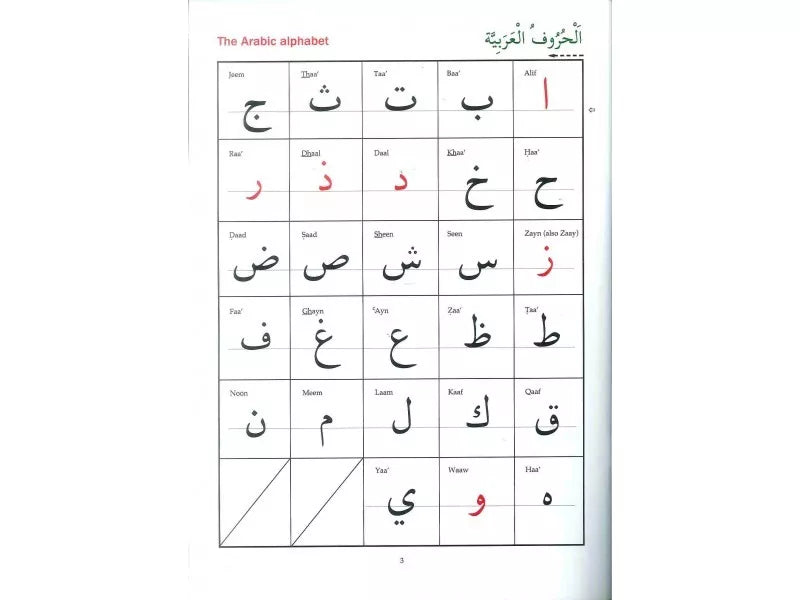 The Arabic alphabet
اَلْحُرُوفُ الْعَرَبِيَّة
Alif Baa' Taa' Thaa' Jeem
ا ب ت ث ج
Ḥaa' Khaa' Daal Dhaal Raa'
ح خ د ذ ر
Zayn (also Zaay) Seen Sheen Ṣaad Ḍaad
ز س ش ص ض
Ṭaa' Ẓaa' ʿAyn Ghayn Faa'
ط ظ ع غ ف
Qaaf Kaaf Laam Meem Noon
ق ك ل م ن
Haa' Waaw Yaa'
ه و ي
3